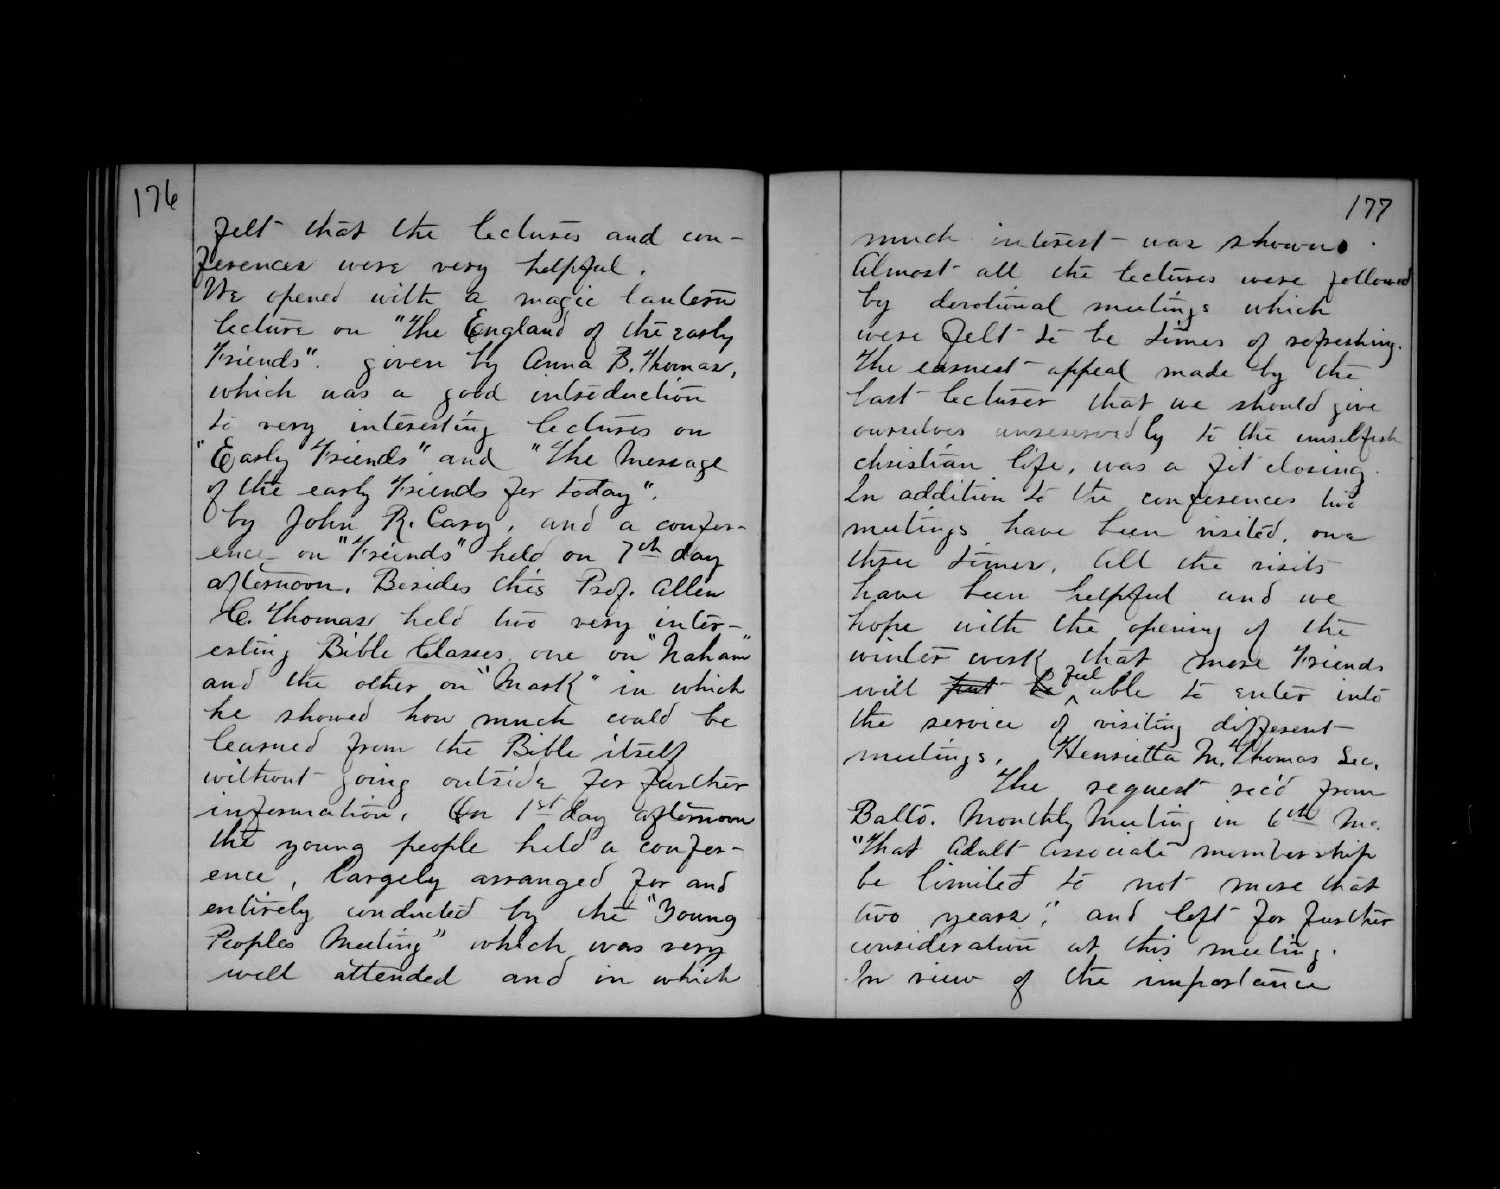 176
felt that the lectures and con-
ferences were very helpful.
We opened with a magic lantern
lecture on "The England of the early
Friends". given by Anna B. Thomas,
which was a good introduction
to very interesting lectures on
"Early Friends" and "The Message
of the early Friends for today".
by John R. Cary, and a confer-
ence on "Friends" held on 7th day
afternoon. Besides this Prof. Allen
C. Thomas held two very inter-
esting Bible Classes, one on "Naham"
and the other on "Mark" in which
he showed how much could be
learned from the Bible itself
without going outside for further
information. On 1st day afternoon
the young people held a confer-
ence, largely arranged for and
entirely conducted by the "Young
Peoples Meeting" which was very
well attended and in which
177
much interest was shown.
Almost all the lectures were followed
by devotional meetings which
were felt to be times of refreshing.
The earnest appeal made by the
last lecturer that we should give
ourselves unreservedly to the unselfish
christian life, was a fit closing.
In addition to the conferences two
meetings have been visited, one
three times. All the visits
have been helpful and we
hope with the opening of the
winter work, that more Friends
will put be feel able to enter into
the service of visiting different
meetings. Henrietta M. Thomas Sec.
The request rec'd from
Balto. Monthly Meeting in 6th Mo.
"That Adult Associate membership
be limited to not more that
two years", and left for further
consideration at this meeting.
In view of the importance